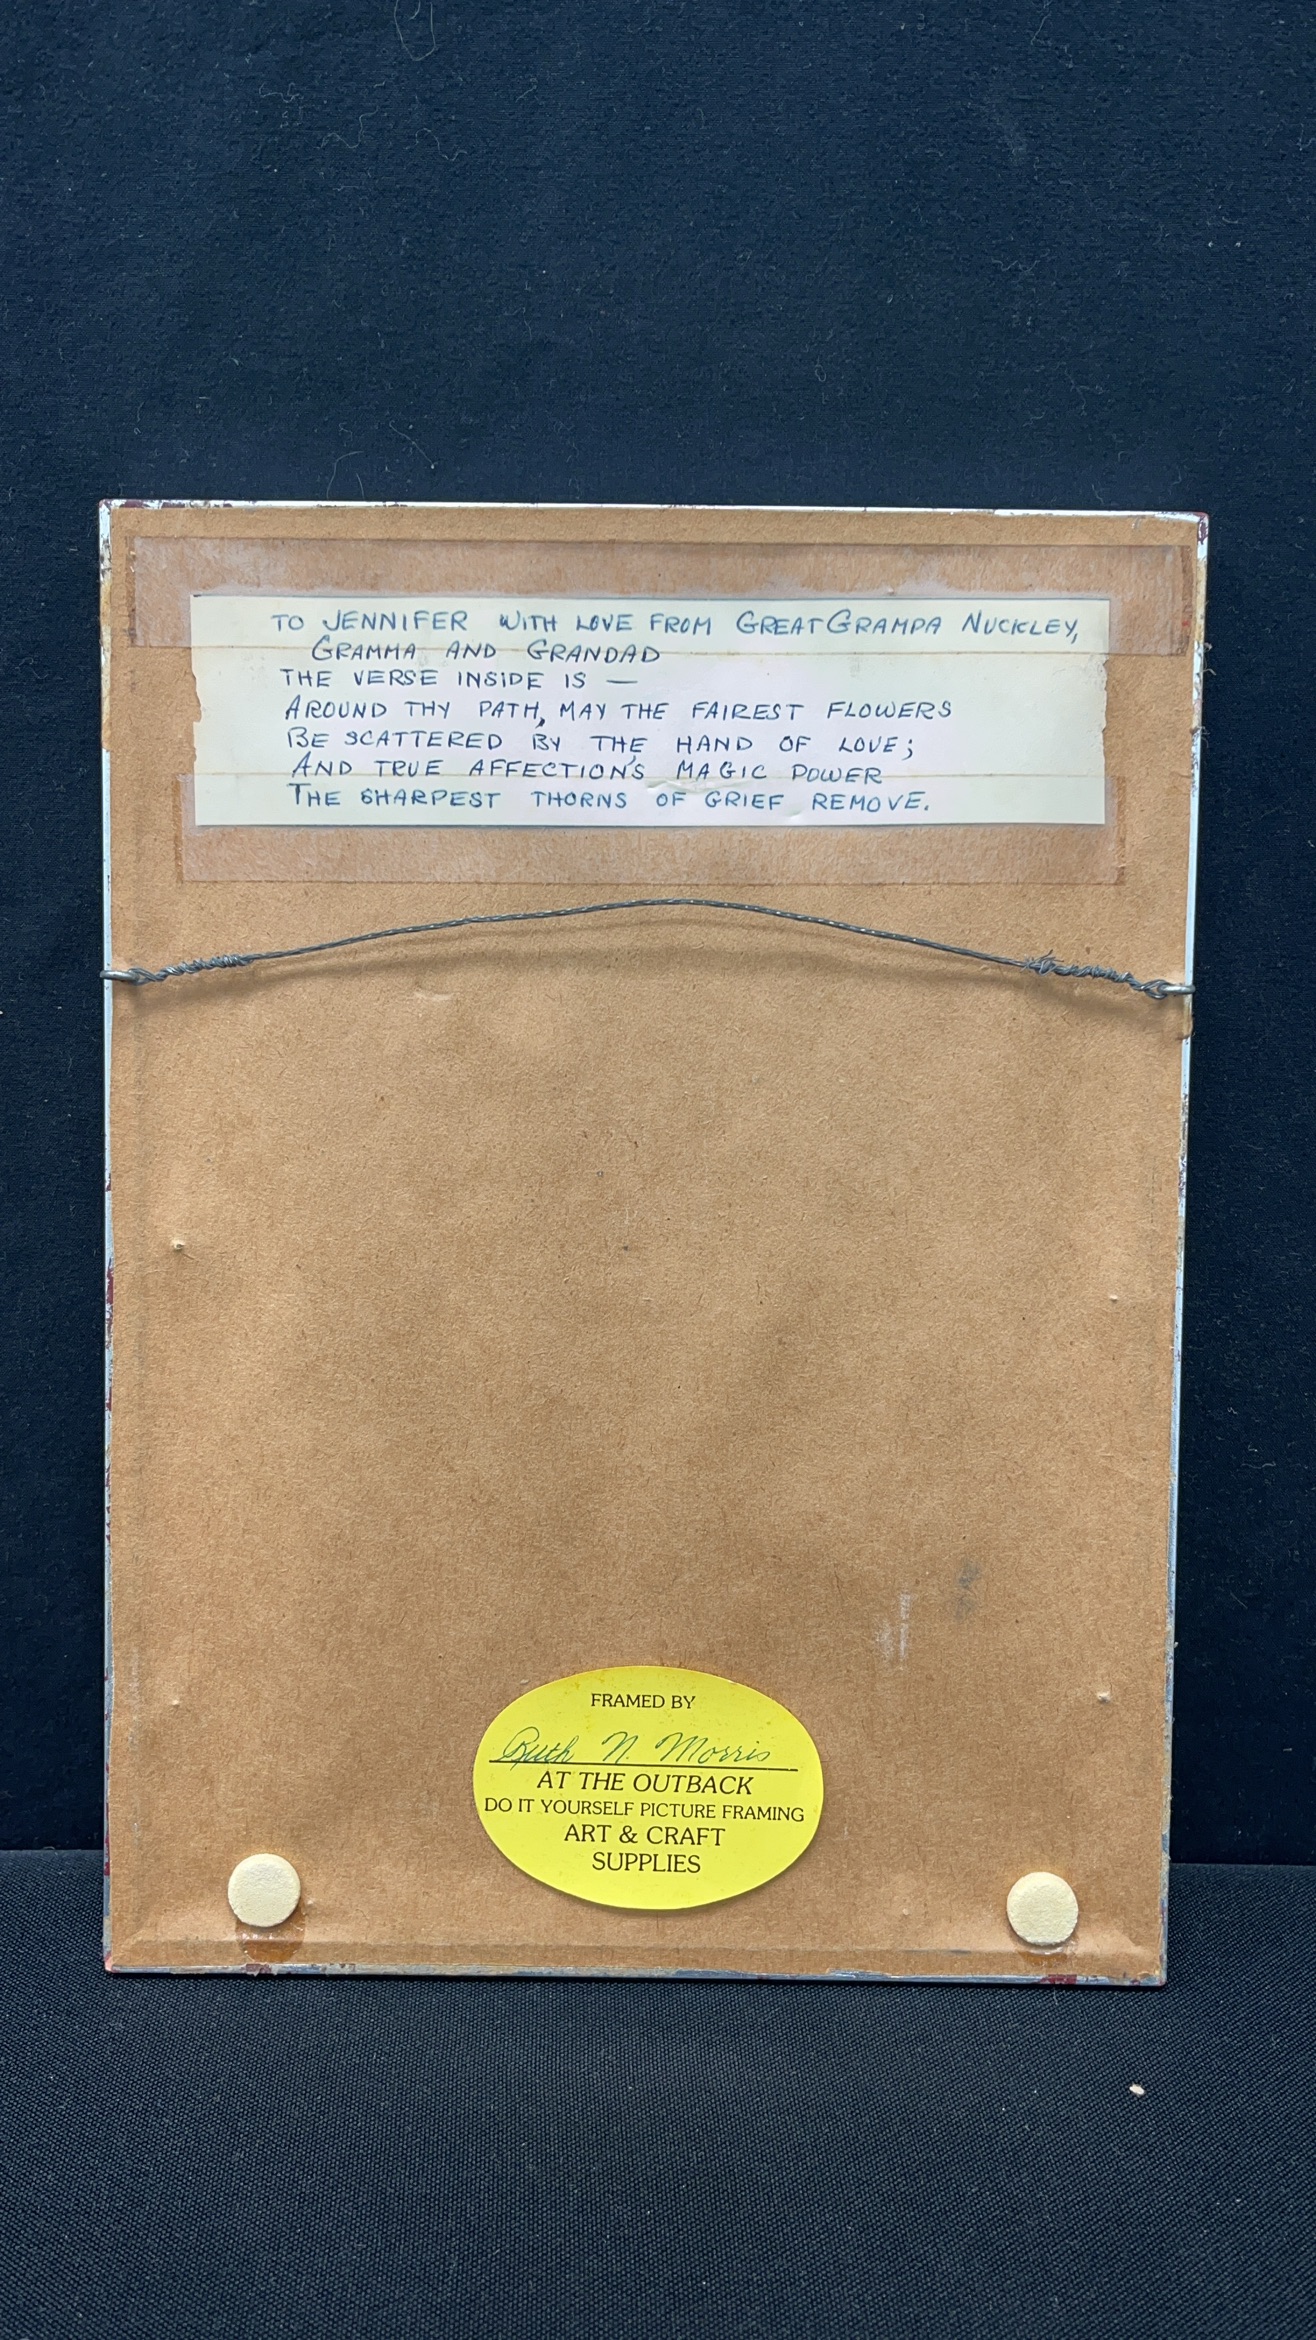 TO JENNIFER WITH LOVE FROM GREAT GRAMPA NUCKLEY,
GRAMMA AND GRANDAD
THE VERSE INSIDE IS —
AROUND THY PATH, MAY THE FAIREST FLOWERS
BE SCATTERED BY THE HAND OF LOVE;
AND TRUE AFFECTION'S MAGIC POWER
THE SHARPEST THORNS OF GRIEF REMOVE.
FRAMED BY
Ruth N. Morris
AT THE OUTBACK
DO IT YOURSELF PICTURE FRAMING
ART & CRAFT
SUPPLIES